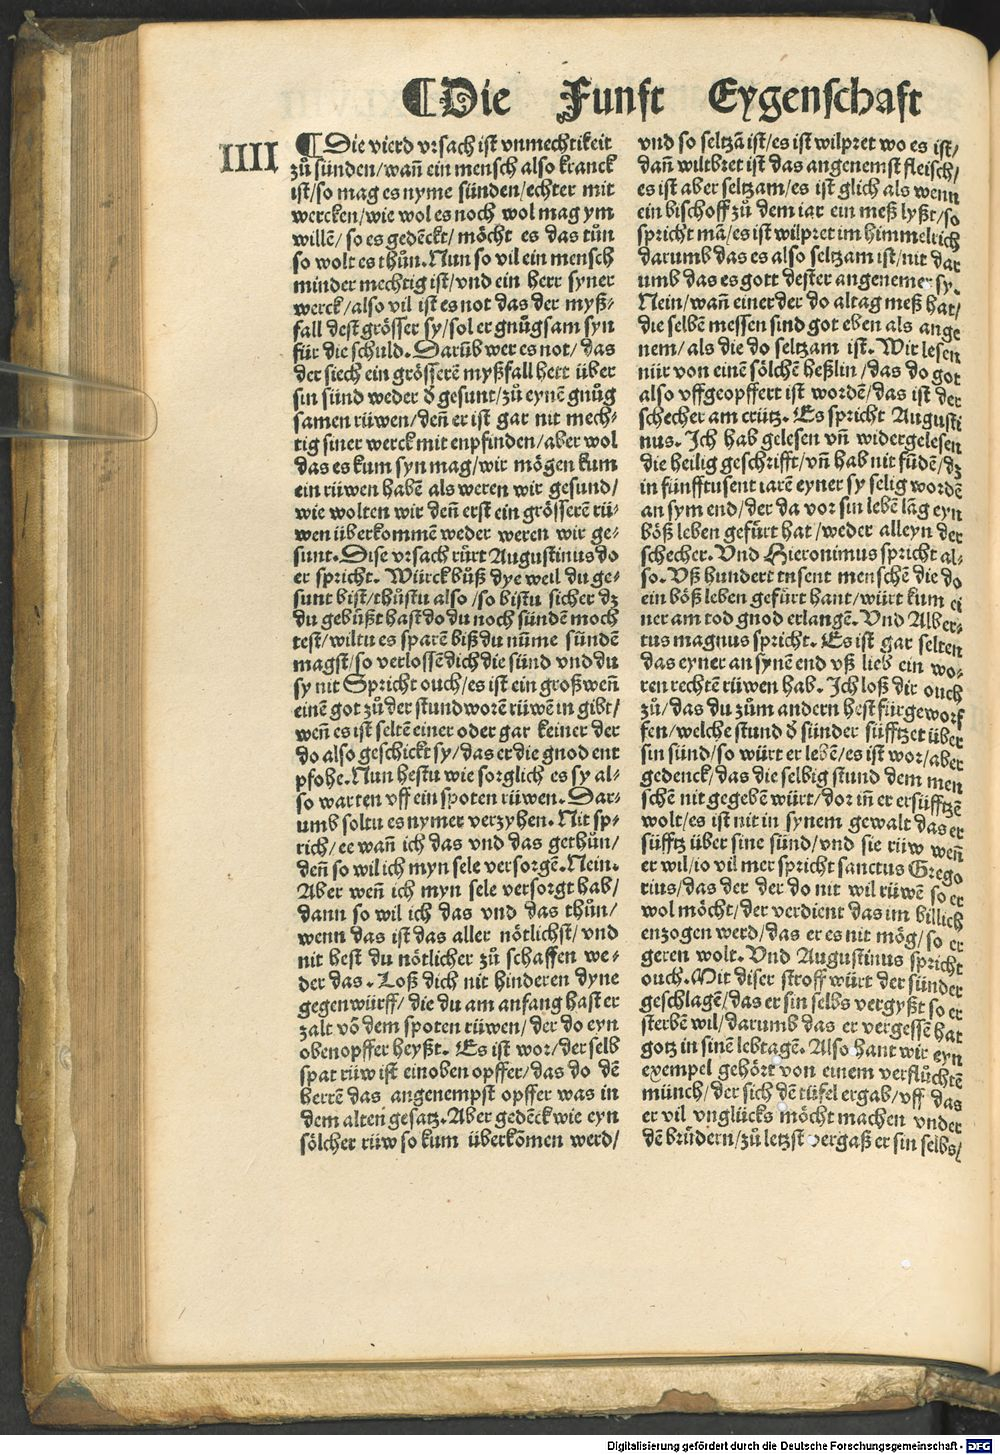 ¶Die Funft Eygenschaft
IIII
¶Die vierd vrsach ist vnmechtikeit
zů sünden/wañ ein mensch also kranck
ist/so mag es nyme sünden/echter mit
wercken/wie wol es noch wol mag ym
willē/so es gedēckt/möcht es das tůn
so wolt es thůn. Nun so vil ein mensch
minder mechtig ist/vnd ein herr syner
werck/also vil ist es not das der myß⸗
fall dest grösser sy/sol er gnůgsam syn
für die schuld. Darūb wer es not/das
der siech ein grösserē myßfall hett über
sin sünd weder ð gesunt/zů eynē gnůg
samen rüwen/deñ er ist gar nit mech⸗
tig siner werck mit enpfinden/aber wol
das es kum syn mag/wir mögen kum
ein rüwen habē als weren wir gesund/
wie wolten wir deñ erst ein grösserē rü⸗
wen überkommē weder weren wir ge⸗
sunt. Dise vrsach rürt Augustinus do
er spricht. Würck bůß dye weil du ge⸗
sunt bist/thůstu also/so bistu sicher dz
du gebůßt hast do du noch sünden moch
test/wiltu es sparē biß du nūme sündē
magst/so verlossē dich die sünd vnd du
sy nit Spricht ouch/es ist ein groß weñ
einē got zů der stund woren rüwē in gibt/
weñ es ist seltē einer oder gar keiner der
do also geschickt sy/das er die gnod ent
pfohe. Nun hestu wie sorglich es sy al⸗
so warten vff ein spoten rüwen. Dar⸗
umb soltu es nymer verzyhen. Nit sp⸗
rich/ee wañ ich das vnd das gethůn/
deñ so wil ich myn sele versorgē. Nein.
Aber weñ ich myn sele versorgt hab/
dann so wil ich das vnd das thůn/
wenn das ist das aller nötlichst/vnd
nit hest du nötlicher zů schaffen we⸗
der das. Loß dich nit hinderen dyne
gegenwürff/die du am anfang hast er
zalt vō dem spoten rüwen/der do eyn
obenopffer heyßt. Es ist wor/der selb
spat rüw ist ein oben opffer/das do dē
herrē das angenempst opffer was in
dem alten gesatz. Aber gedēck wie eyn
sölcher rüw so kum überkōmen werd/
vnd so seltzā ist/es ist wilpret wo es ist/
dañ wiltbret ist das angenemst fleisch/
es ist aber seltzam/es ist glich als wenn
ein bischoff zů dem iar ein meß lyßt/so
spricht mā/es ist wilpret im himmelrich
darumb das es also seltzam ist/nit dar
umb das es gott dester angenemer sy.
Nein/wañ einer der do altag meß hat/
die selben messen sind got eben als ange
nem/als die do seltzam ist. Wir lesen
nür von einē sölchē heßlin/das do got
also vffgeopffert ist wordē/das ist der
schecher am crütz. Es spricht Augusti
nus. Ich hab gelesen vñ widergelesen
die heilig geschrifft/vñ hab nit fūdē/dz
in fünfftusent iarē eyner sy selig wordē
an sym end/der da vor sin lebē lāg eyn
böß leben gefürt hat/weder alleyn der
schecher. Vnd Hieronimus spricht al⸗
so. Vß hundert tusent menschē die do
ein böß leben gefürt hant/würt kum ei
ner am tod gnod erlangē. Vnd Alber⸗
tus magnus spricht. Es ist gar selten
das eyner an synē end vß lieb ein wo⸗
ren rechtē rüwen hab. Ich loß dir ouch
zů/das du zům andern hest fürgeworf
fen/welche stund ð sünder süfftzet über
sin sünd/so würt er lebē/es ist wor/aber
gedenck/das die selbig stund dem men
schē nit gegebē würt/dor iñ er ersüfftzē
wolt/es ist nit in synem gewalt das er
süfftz über sine sünd/vnd sie rüw weñ
er wil/io vil mer spricht sanctus Grego
rius/das der der do nit wil rüwē so er
wol möcht/der verdient das im billich
enzogen werd/das er es nit mög/so er
geren wolt. Vnd Augustinus spricht
ouch. Mit diser stroff würt der sünder
geschlagē/das er sin selbs vergyßt so er
sterbē wil/darumb das er vergessē hat
gotz in sinē lebtagē. Also hant wir eyn
exempel gehört von einem verflůchtē
münch/der sich dē tüfel ergab/vff das
er vil vnglücks möcht machen vnder
dē brüdern/zů letzst vergaß er sin selbs/
Digitalisierung gefördert durch die Deutsche Forschungsgemeinschaft - DFG